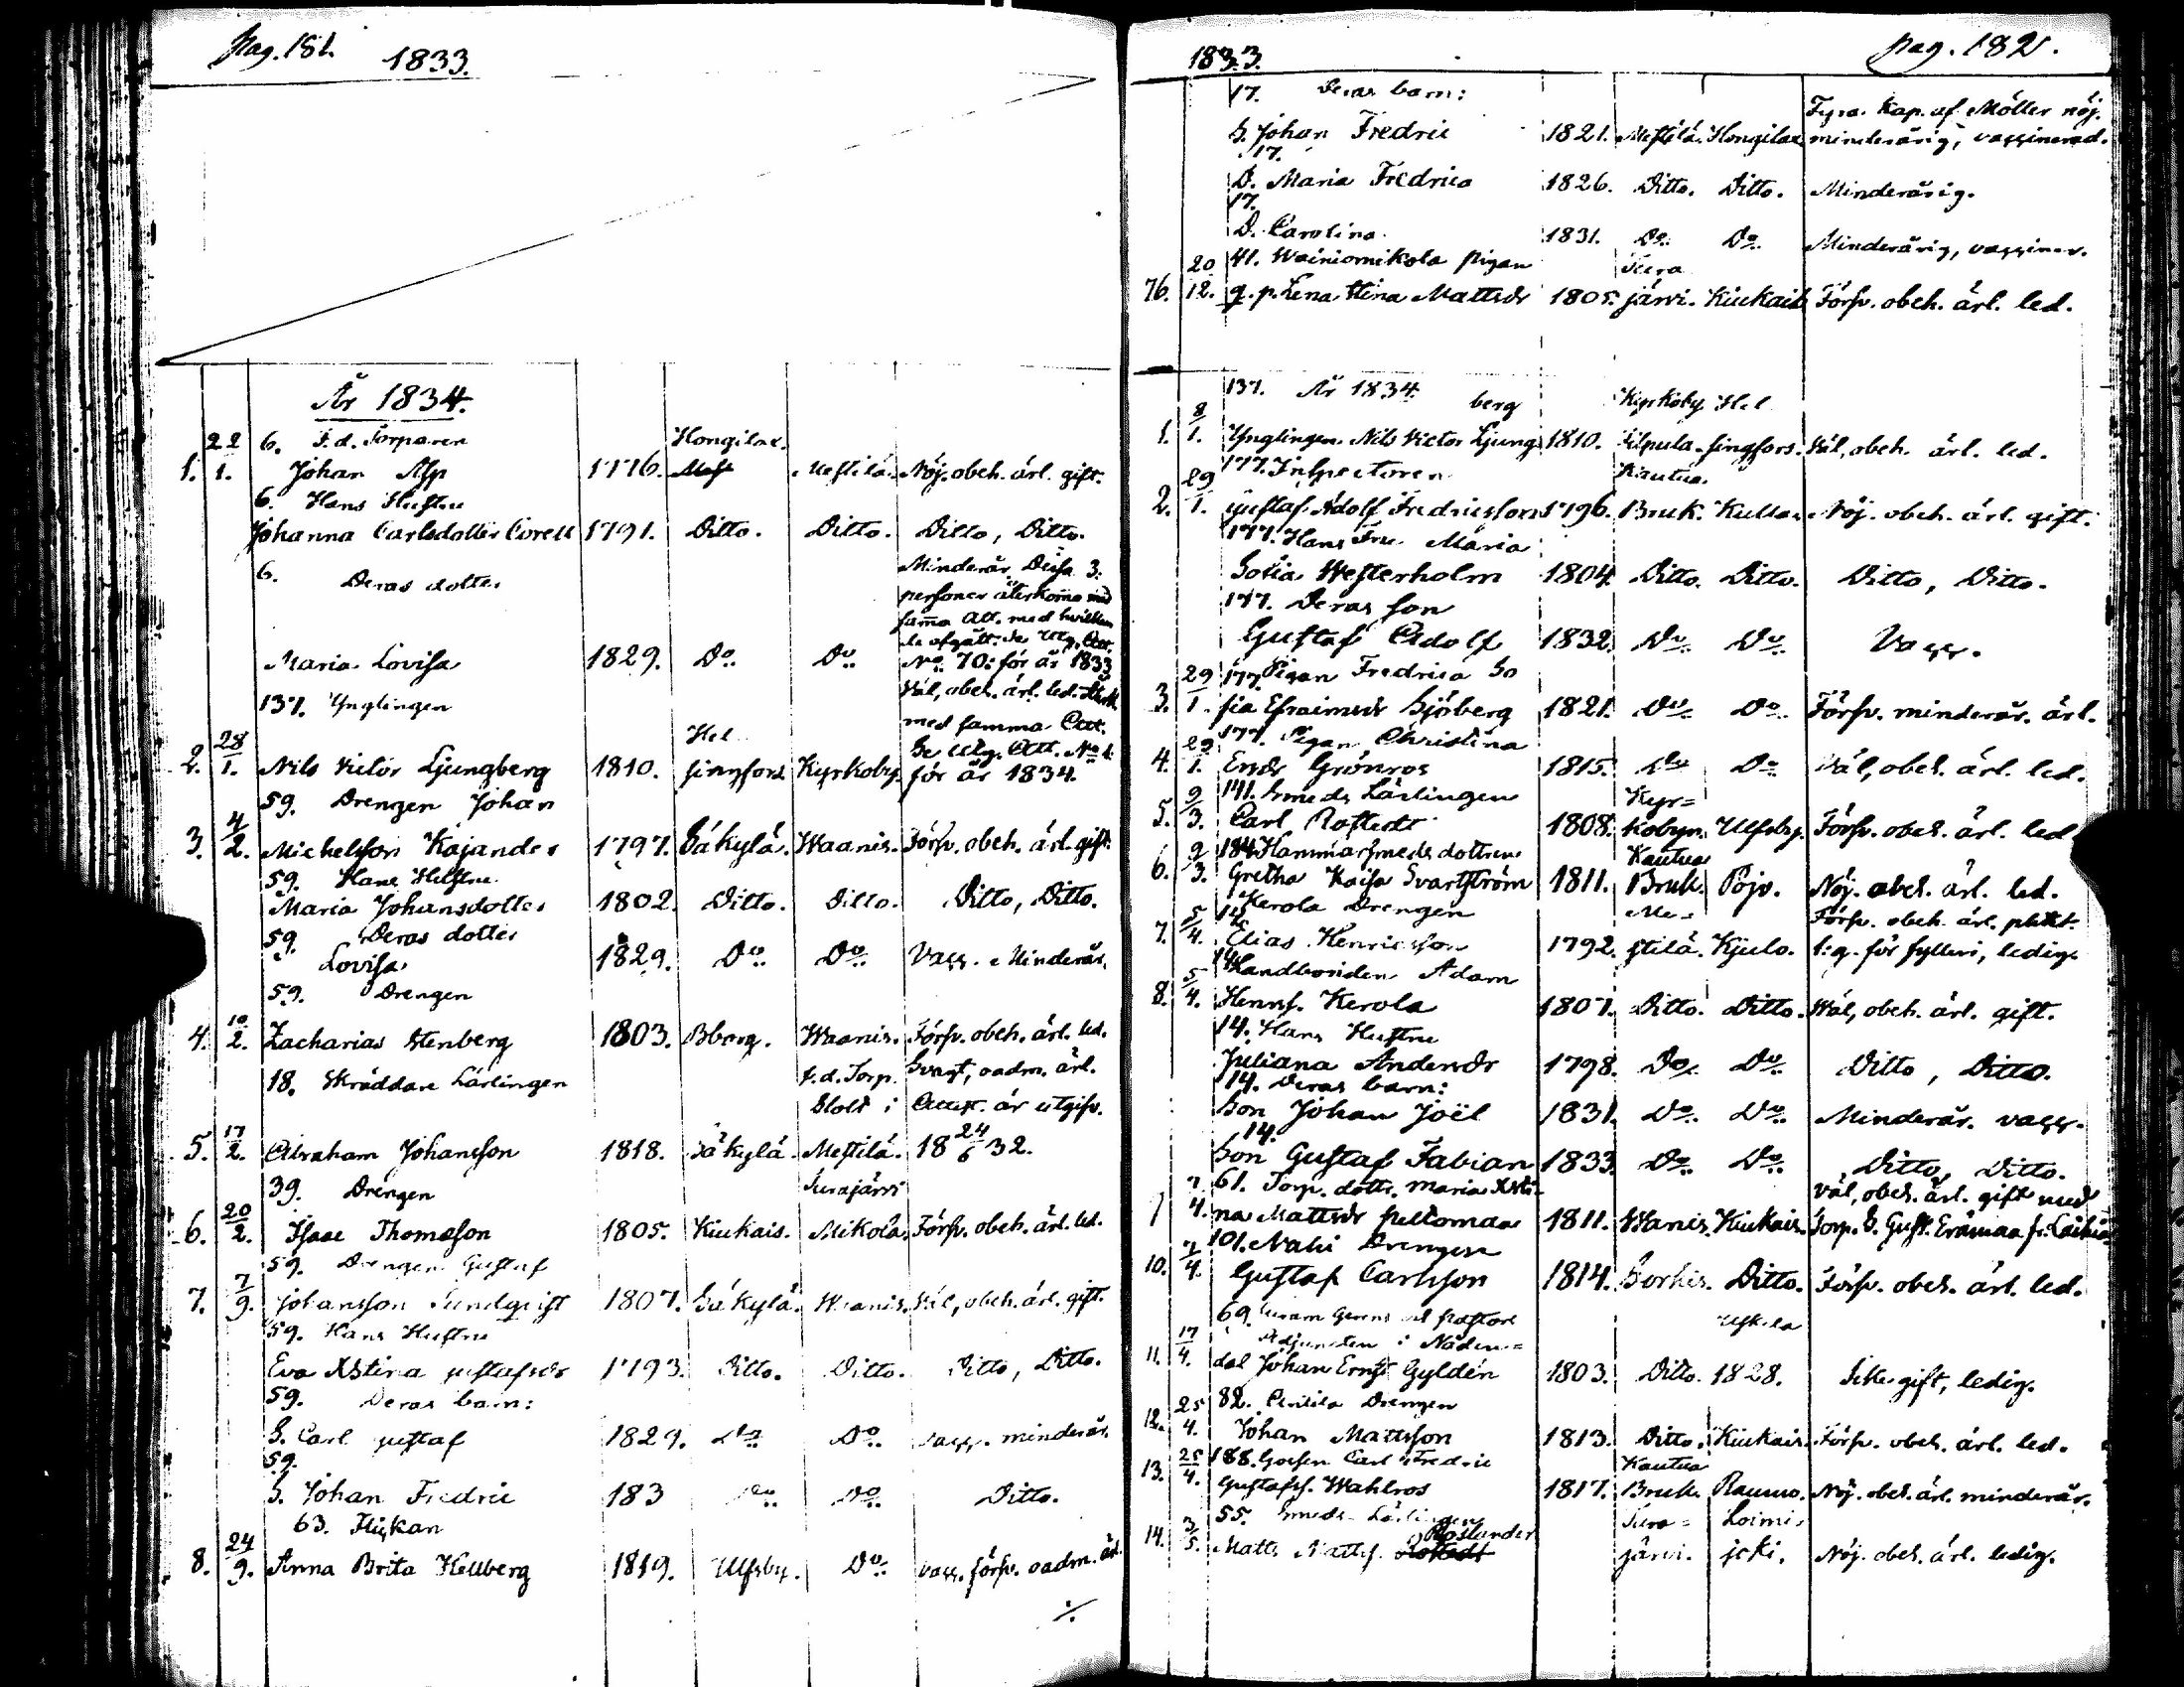 pag. 181. 1833.
År 1834.
22 6. F.d. Torparen Hongilax.
1. 1. Johan Alp 1776. Meſtilä. Nöj. obeh. ärl. gift.
6. Hans Huſtru
Johanna Carlsdotter 1791. Ditto. Ditto. Ditto, Ditto.
6. Deras dotter
Minderår. Deſsa 3.
perſoner återkomna med
ſamma Att. med hvilken
de afgått. Se Utg. Att.
Maria Loviſa 1829. Do Do No. 70: för år 1833
137. Ynglingen Väl, obeh. ärl. led.
med ſamma Att.
28 Hel Se Utg. Att. No 1.
2. 1. Nils Victor Ljungberg 1810. ſingfors Kyrkoby. för år 1834.
59. Drengen Johan
4
3. 2. Michelſson Kajander 1797. Säkylä. Waanis. Förſv. obeh. ärl. gift.
59. Hans Huſtru
Maria Johansdotter 1802. Ditto. Ditto. Ditto, Ditto.
59. Deras dotter
Loviſa 1829. Do Do Vacc. Minderår.
59. Drengen
10
4. 2. Zacharias Stenberg 1803. Bborg. Waanis. Förſv. obeh. ärl. led.
18. Skräddare Lärlingen F.d. Torp. Svagt, oadm. ärl.
Slolt i Atteſt. är utgifv.
17
5. 2. Abraham Johansſon 1818. Säkylä. Meſtilä. 18 24/6 32.
39. Drengen Turajärvi
20
6. 2. Iſaac Thomasſon 1805. Kiukais. Mikola. Förſv. obeh. ärl. led.
59. Drengen Guſtaf
7
7. 9. Johansſon Sundqviſt 1807. Säkylä. Waanis. Väl, obeh. ärl. gift.
59. Hans Huſtru
Eva Xstina Guſtafsdr 1793. Ditto. Ditto. Ditto, Ditto.
59. Deras barn:
S. Carl Guſtaf 1829. Do Do Vacc. minderår.
59.
S. Johan Fredric 183 Do Do Ditto.
63. Flickan
24
8. 9. Anna Brita Hellberg 1819. Ulfsby. Do Vacc. förſv. oadm. ärl.
./.
1833. pag. 182.
17. Deras barn: Fyra kap. af Möller nöj.
S. Johan Fredric 1821. Meſtilä. Hongilax minderårig, vaccinerad.
17.
D. Maria Fredrica 1826. Ditto. Ditto. Minderårig.
17.
D. Carolina 1831. Do Do Minderårig, vacciner.
20 41. Wainiomikola Pigan Tura
76. 12. q.p. Lena Stina Mattsdr 1805. järvi. Kiukais Förſv. obeh. ärl. led.
137. År 1834.
8 berg Kyrkoby Hel
1. 1. Ynglingen Nils Victor Ljung 1810. ſingfors. Väl, obeh. ärl. led.
29 177. Inſpectoren Kautua
2. 1. Guſtaf Adolf Fredricsſon 1796. Bruk. Kulla. Nöj. obeh. ärl. gift.
177. Hans Fru Maria
Sofia Weſterholm 1804. Ditto. Ditto. Ditto, Ditto.
177. Deras ſon
Guſtaf Adolf 1832. Do Do Vacc.
29 177. Pigan Fredrica So
3. 1. fia Efraimsdr Sjöberg 1821. Do Do Förſv. minderår. ärl.
29 177. Pigan Christina
4. 1. Ersdr Grönros 1815. Do Do Väl, obeh. ärl. led.
9 141. Smeds Lärlingen Kyr=
5. 3. Carl Roſtedt 1808. kobyn. Ulfsby. Förſv. obeh. ärl. led.
9 184. Hammarſmeds dottren Kautua
6. 3. Gretha Kaiſa Svartſtröm 1811. Bruk. Pojo. Nöj. obeh. ärl. led.
5 14. Kerola Drengen Me= Förſv. obeh. ärl. plikt.
7. 4. Elias Henricsſon 1792. ſtilä. Kjulo. 1:g. för fylleri, ledig.
5 14. Landbonden Adam
8. 4. Henrſ. Kerola 1807. Ditto. Ditto. Väl, obeh. ärl. gift.
14. Hans Huſtru
Juliana Andersdr 1798. Do Do Ditto, Ditto.
14. Deras barn:
Son Johan Joël 1831. Do Do Minderår. vacc.
14.
Son Guſtaf Fabian 1833. Do Do Ditto, Ditto.
7 61. Torp. dottr. Maria Xsti- Väl, obeh. ärl. gift med
9 4. na Mattsdr Peltomaa 1811. Wanis Kiukais. Torp. S. Guſt. Erämaa fr.
7 101. Nahi Drengen
10. 4. Guſtaf Carlsſon 1814. Sorkis. Ditto. Förſv. obeh. ärl. led.
69. Uſkela
17 Adjuncten i Nåden=
11. 4. dal Johan Ernſt Gyldén 1803. Ditto. 1828. Icke gift, ledig.
25 82. Drengen
12. 4. Johan Mattsſon 1813. Ditto. Kiukais. Förſv. obeh. ärl. led.
25 188. Goſsen Carl Fredric Kautua
13. 4. Guſtafſ. Wahlros 1817. Bruk. Raumo. Nöj. obeh. ärl. minderår.
3 55. Smeds Lärlingen Tura= Loimi
14. 5. Matts Mattſ. Roslander Roſtedt järvi. joki. Nöj. obeh. ärl. ledig.